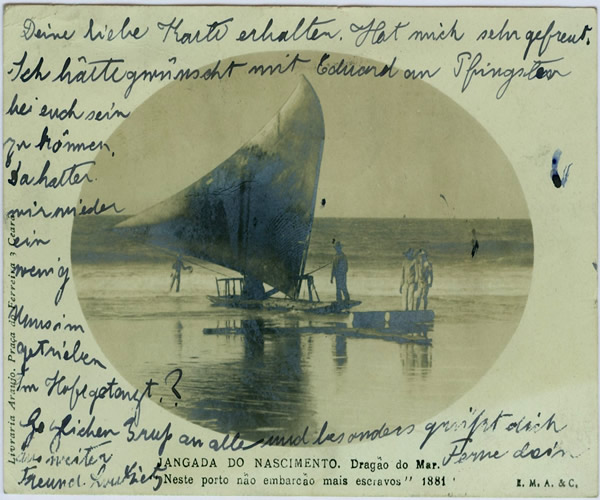 Deine liebe Karte erhalten. Hat mich sehr gefreut.
Ich hätte gwünscht mit Eduard an Pfingsten
bei euch sein
zu können,
da hätten
wir wieder
ein
wenig
im Hof getanzt?
getrieben
Herzlichen Gruß an alle und besonders grüßt dich
aus weiter Ferne dein
Freund
Livraria Araujo. Praça do Ferreira 3 Ceará
JANGADA DO NASCIMENTO. Dragão do Mar.
"Neste porto não embarcão mais escravos" 1881
E. M. A. & C.